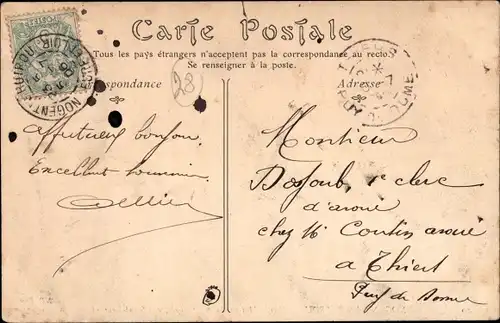 Carte Postale
Tous les pays étrangers n'acceptent pas la correspondance au recto.
Se renseigner à la poste.
Correspondance
Adresse
28
NOGENT
Affectueux bonjour
Excellent souvenir
Monsieur
1er clerc
d'avoué
chez Mr Coutin avoué
a Thiers
Puy de Dome